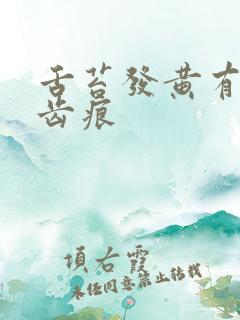 舌苔發黄有
齿痕
項右霞
未经同意禁止转载